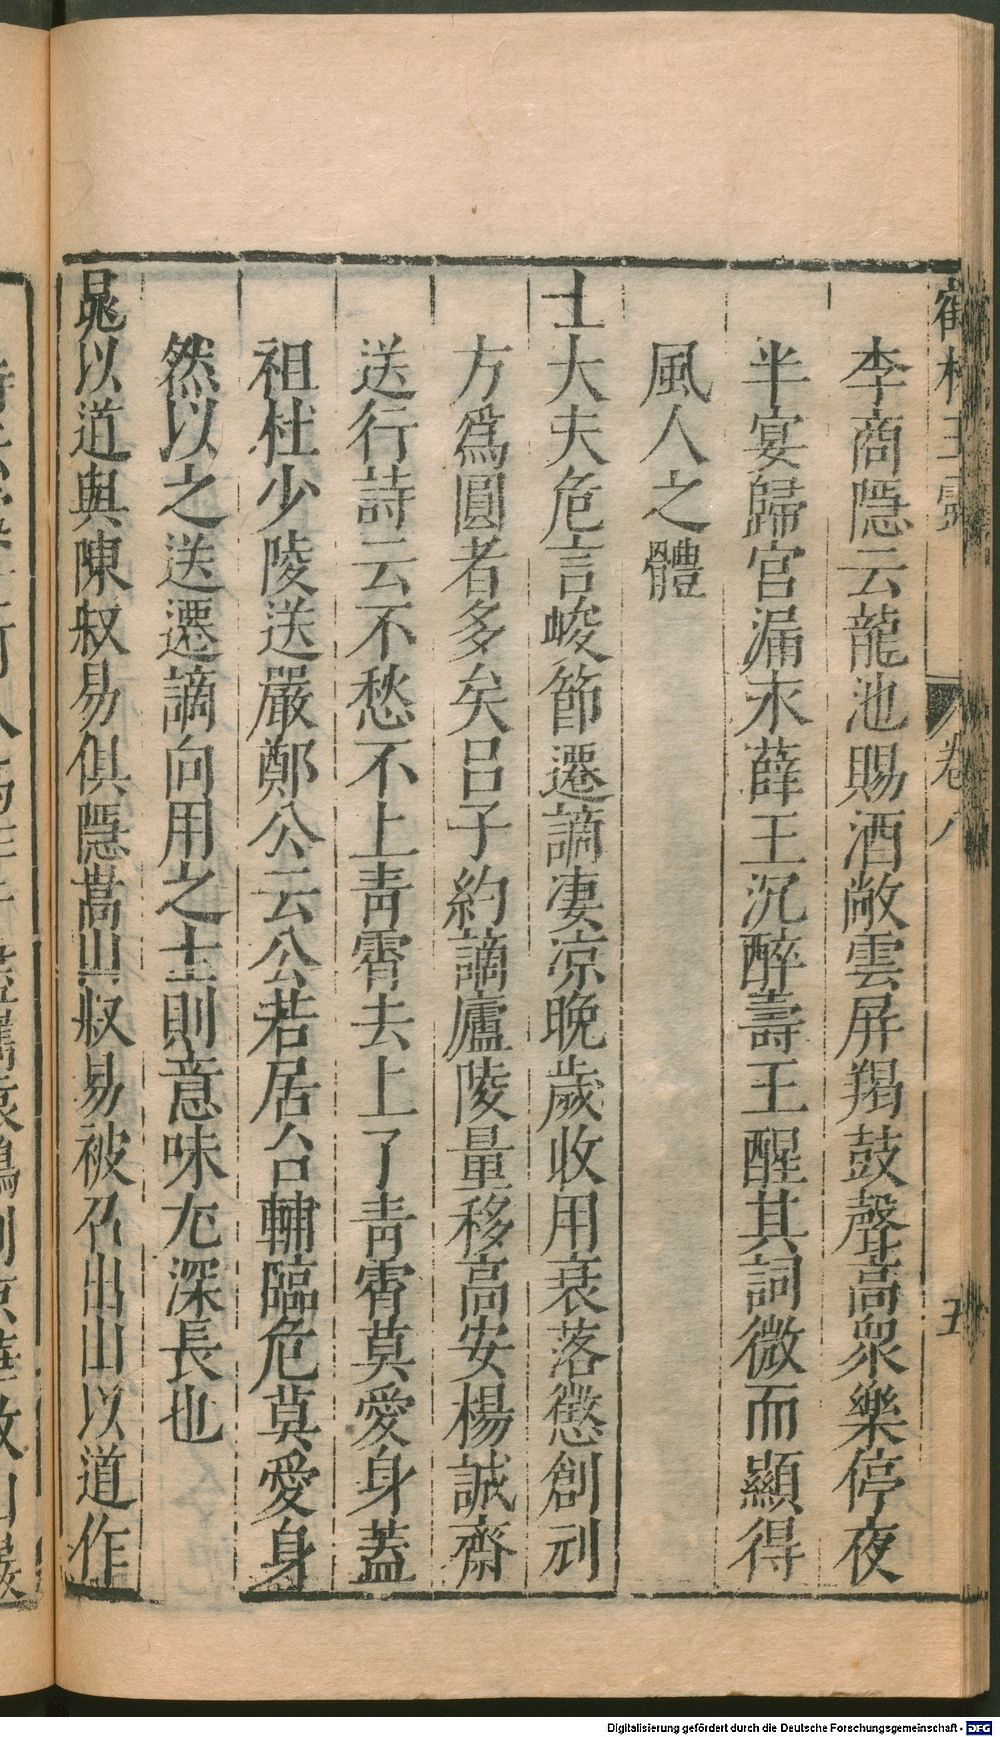 李商隱云龍池賜酒敞雲屏羯鼓聲高衆樂停夜
半宴歸宮漏永薛王沉醉壽王醒其詞微而顯得
風人之體
士大夫危言峻節遷謫凄凉晚歲收用衰落懲創刓
方爲圓者多矣呂子約謫廬陵量移高安楊誠齋
送行詩云不愁不上靑霄去上了靑霄莫愛身蓋
祖杜少陵送嚴鄭公云公若居台輔臨危莫愛身
然以之送遷謫向用之士則意味尢深長也
晁以道與陳叔易俱隱嵩山叔易被召出山以道作
卷八
五
Digitalisierung gefördert durch die Deutsche Forschungsgemeinschaft - DFG